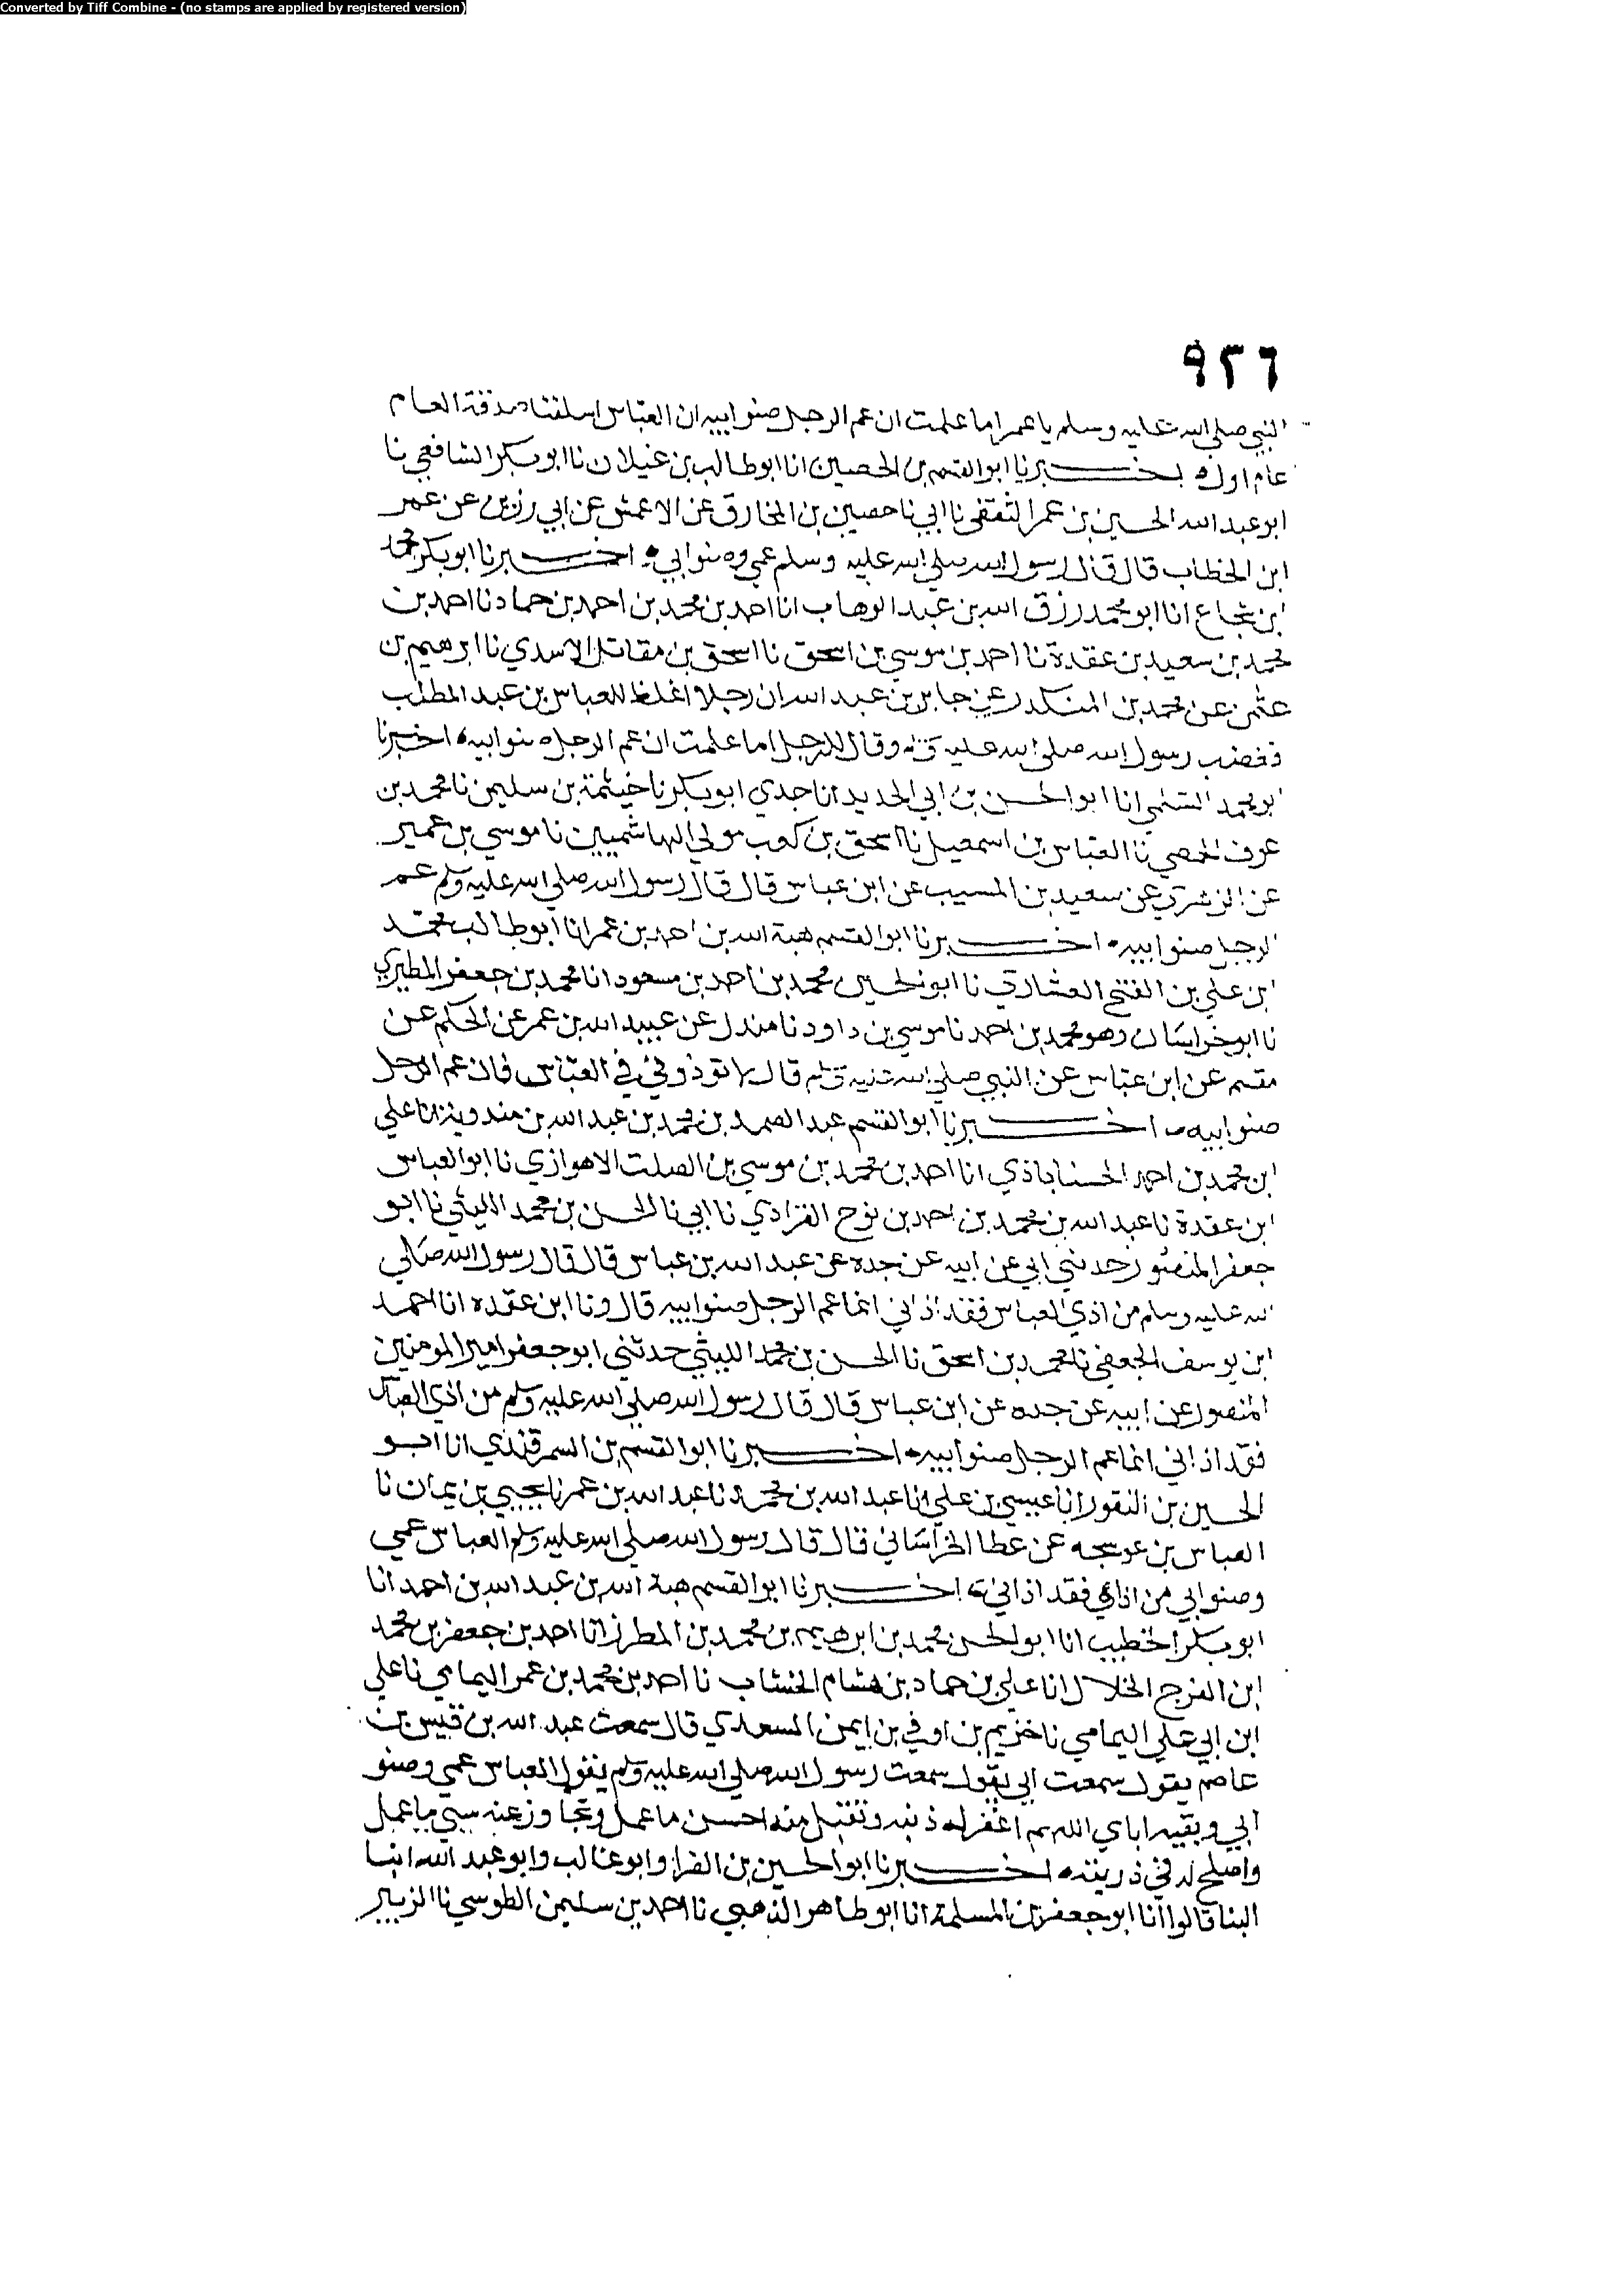 Converted by Tiff Combine - (no stamps are applied by registered version)
٩٣٦
النبي صلى الله عليه وسلم يا عمر اما علمت ان عم الرجل صنو ابيه ان العباس اسلفنا صدقة العام
عام اول اخبرنا ابو القسم بن الحصين انا ابو طالب بن غيلان نا ابو بكر الشافعي نا
ابو عبد الله الحسين بن عمر الثقفي نا ابي نا حصين بن المخارق عن الاعمش عن ابي رزين عن عمر
ابن الخطاب قال قال رسول الله صلى الله عليه وسلم عمي وصنو ابي اخبرنا ابو بكر محمد
ابن شجاع انا ابو محمد رزق الله بن عبد الوهاب انا احمد بن محمد بن احمد بن حماد نا احمد بن
محمد بن سعيد بن عقدة نا احمد بن موسي بن اسحق نا اسحق بن مقاتل الاسدي نا ابرهيم بن
عثمن عن محمد بن المنكدر عن جابر بن عبد الله ان رجلا اغلظ للعباس بن عبد المطلب
فغضب رسول الله صلى الله عليه وقال للرجل اما علمت ان عم الرجل صنو ابيه اخبرنا
ابو محمد السلمي انا ابو الحسن بن ابي الحديد انا جدي ابو بكر نا خيثمة بن سليمن نا محمد بن
عوف الحمصي نا العباس بن اسمعيل نا اسحق بن كعب مولي الهاشميين نا موسي بن عمير
عن الزهري عن سعيد بن المسيب عن ابن عباس قال قال رسول الله صلي الله عليه وسلم عم
الرجل صنو ابيه اخبرنا ابو القسم هبة الله بن احمد بن عمر انا ابو طالب محمد
ابن علي بن الفتح العشاري نا ابو الحسين محمد بن احمد بن مسعود انا محمد بن جعفر المطيري
نا ابو خراسان وهو محمد بن احمد نا موسي بن داود نا مندل عن عبيد الله بن عمر عن الحكم عن
مقسم عن ابن عباس عن النبي صلي الله عليه وسلم قال لا تؤذوني في العباس فان عم الرجل
صنو ابيه اخبرنا ابو القسم عبد الصمد بن محمد بن عبد الله بن مندويه انا علي
ابن محمد بن احمد الحسناباذي انا احمد بن محمد بن موسي بن الصلت الاهوازي نا ابو العباس
ابن عقدة نا عبد الله بن محمد بن احمد بن نوح نا ابي نا الحسن بن محمد الليثي نا ابو
جعفر المنصور حدثني ابي عن ابيه عن جده عن عبد الله بن عباس قال قال رسول الله صلى
الله عليه وسلم من اذي العباس فقد اذاني انما عم الرجل صنو ابيه قال ونا ابن عقده انا احمد
ابن يوسف الجعفي نا محمد بن اسحق نا الحسن بن محمد الليثي حدثني ابو جعفر امير المومنين
المنصور عن ابيه عن جده عن ابن عباس قال قال رسول الله صلى الله عليه وسلم من اذي العباس
فقد اذاني انما عم الرجل صنو ابيه اخبرنا ابو القسم بن السمرقندي انا ابو
الحسين بن النقور انا عيسي بن علي انا عبد الله بن محمد نا عبد الله بن عمر نا يحيي بن يمان نا
العباس بن عوسجه عن عطا الخراساني قال قال رسول الله صلى الله عليه وسلم العباس عمي
وصنو ابي من اذاه فقد اذاني اخبرنا ابو القسم هبة الله بن عبد الله بن احمد انا
ابو بكر الخطيب انا ابو الحسن محمد بن ابرهيم بن محمد بن المطرز انا احمد بن جعفر بن محمد
ابن الفرج الخلال انا علي بن حماد بن هشام الخشاب نا احمد بن محمد بن عمر اليمامي نا علي
ابن ابي علي اليمامي نا خزيم بن اوفي بن ايمن السعدي قال سمعت عبد الله بن قيس بن
عاصم يقول سمعت ابي يقول سمعت رسول الله صلى الله عليه وسلم يقول العباس عمي وصنو
ابي وبقيه اباي اللهم اغفر له ذنبه وتقبل منه احسن ما عمل وتجاوز عنه سيي ما عمل
واصلح له في ذريته اخبرنا ابو الحسين بن الفرا وابو غالب وابو عبد الله ابنا
البنا قالوا انا ابو جعفر بن المسلمة انا ابو طاهر الذهبي نا احمد بن سليمن الطوسي نا الزبير